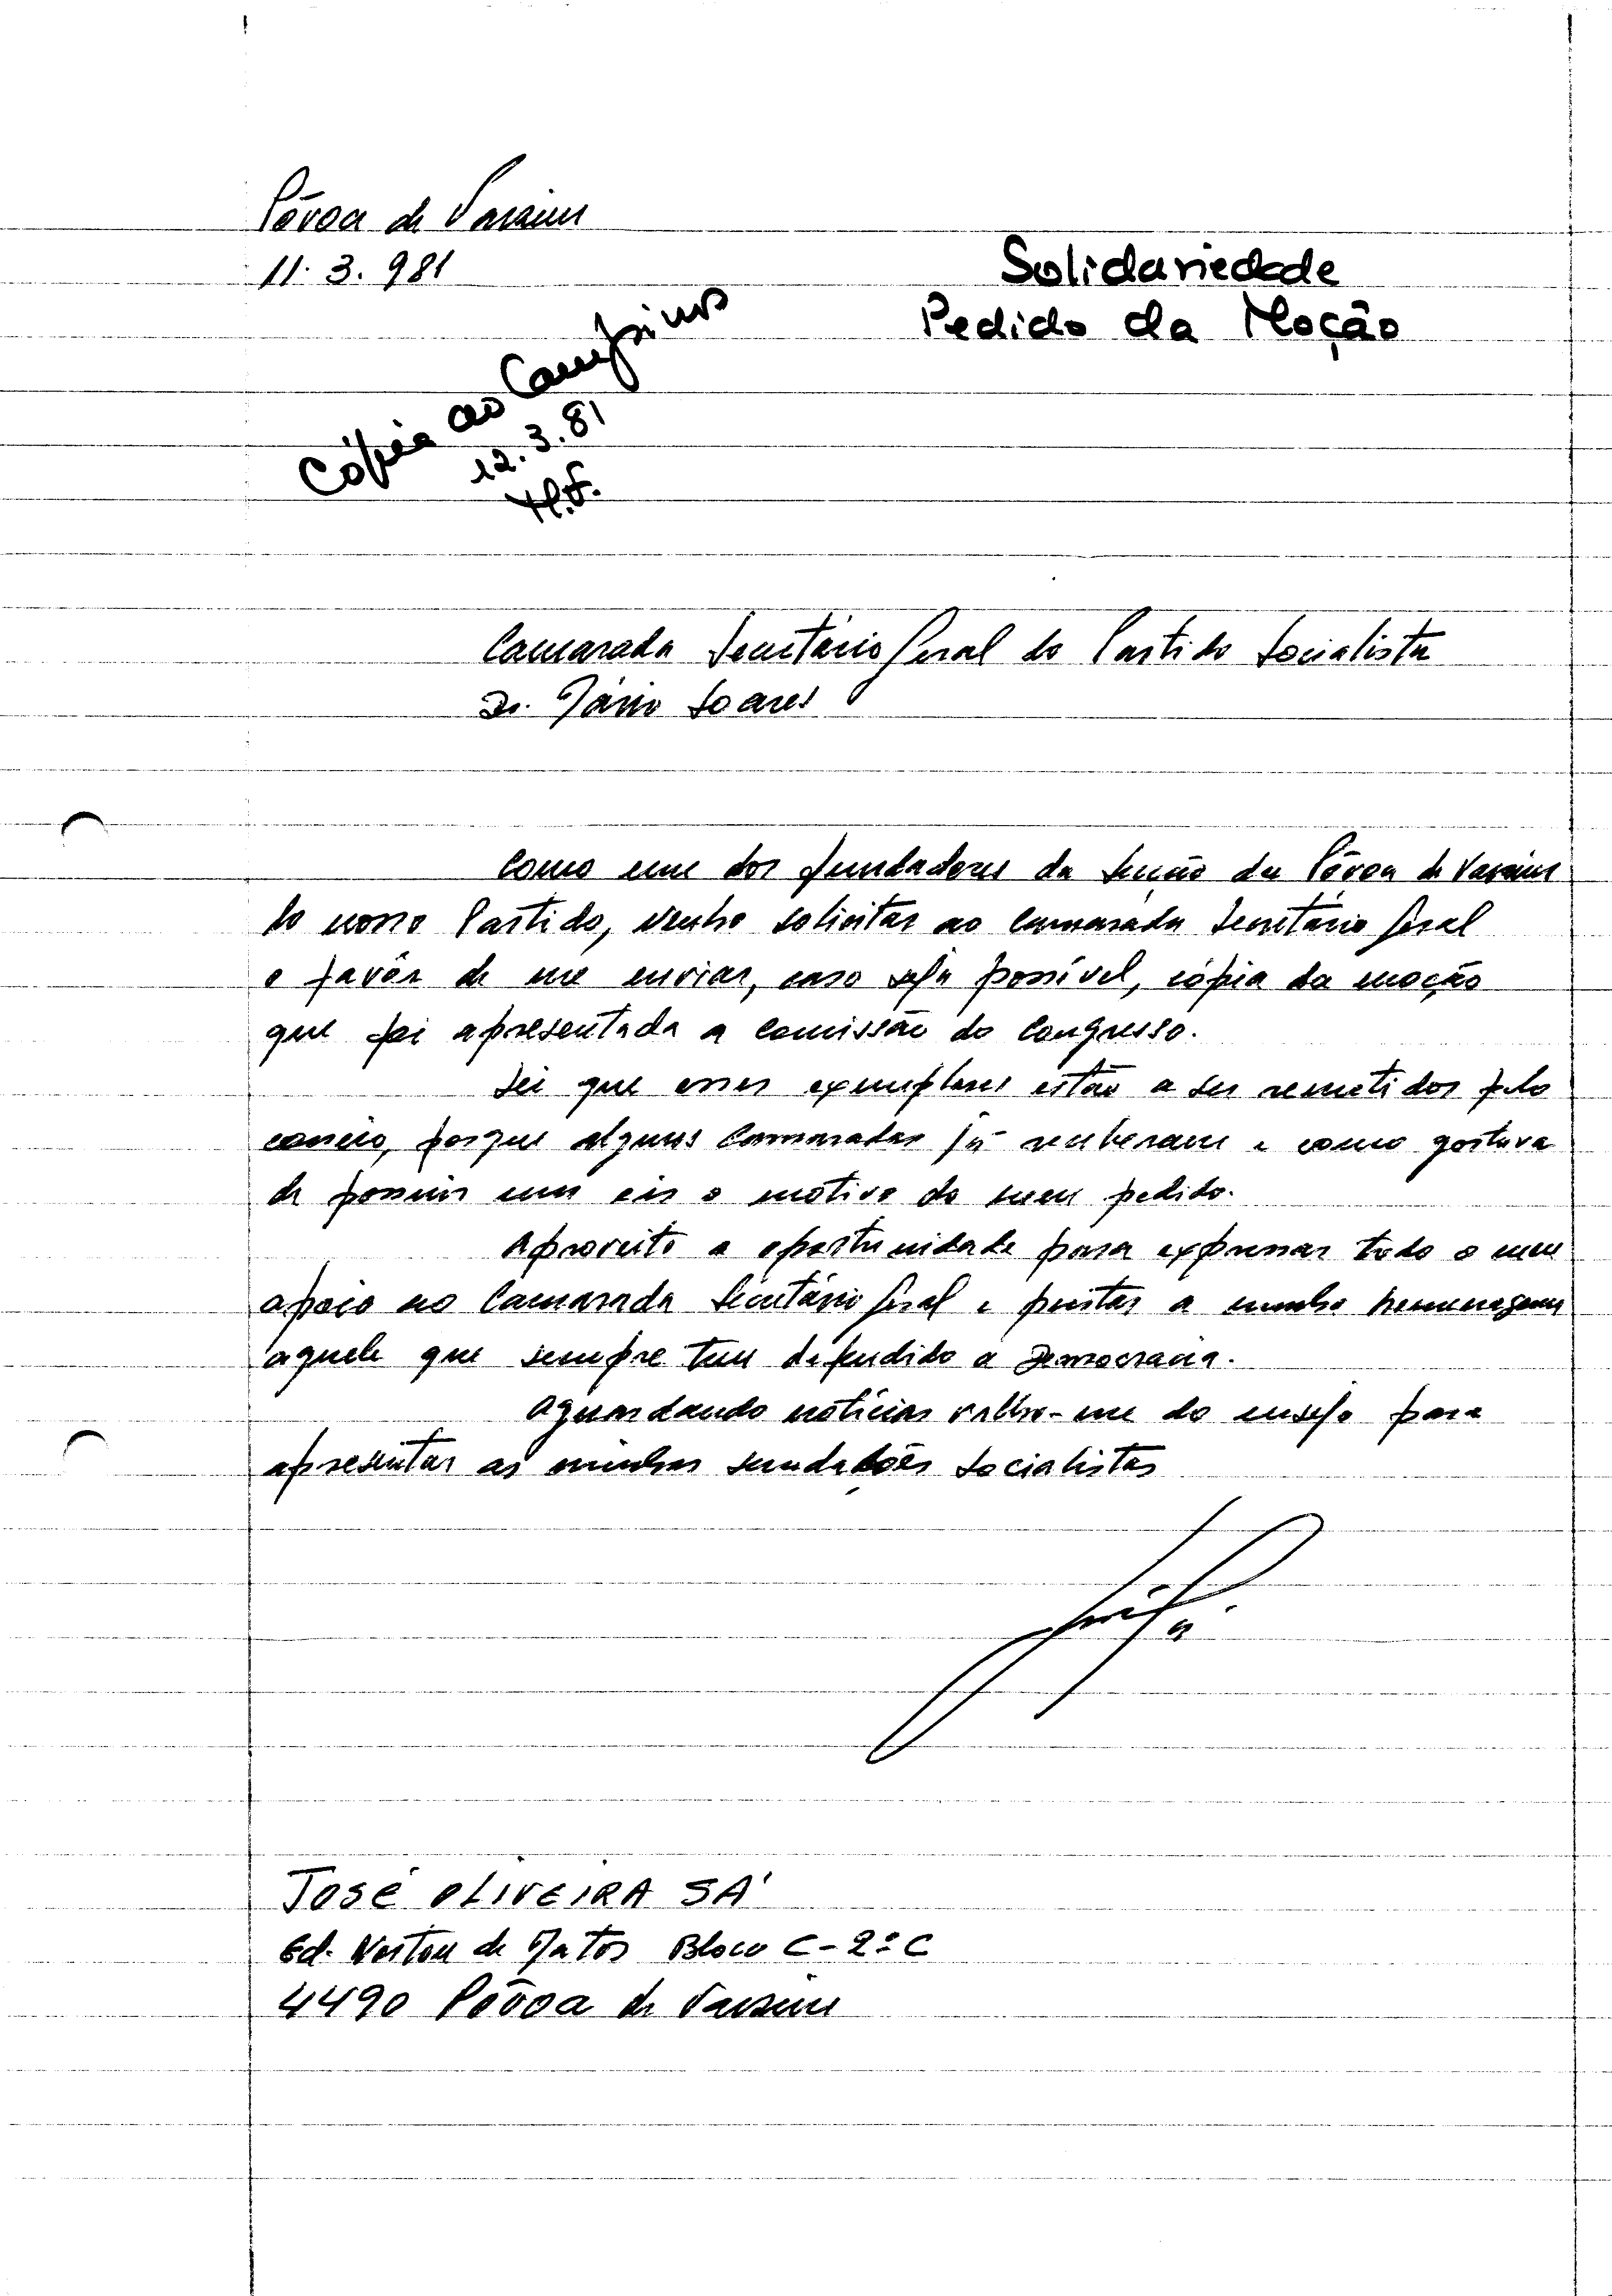 Póvoa de Varzim
11. 3. 981
Solidariedade
Pedido da Moção
Cópia ao Campinos
12.3.81
Camarada Secretário Geral do Partido Socialista
Dr. Mário Soares
Como um dos fundadores da Secção da Póvoa de Varzim
do nosso Partido, venho solicitar ao Camarada Secretário Geral
o favôr de me enviar, caso seja possível, cópia da moção
que foi apresentada a Comissão do Congresso.
Sei que esses exemplares estão a ser remetidos pelo
correio, porque alguns Camaradas já receberam e como gostava
de possuir um eis o motivo do meu pedido.
Aproveito a oportunidade para expressar todo o meu
apoio ao Camarada Secretário Geral e prestar a minha homenagem
aquele que sempre tem defendido a Democracia.
Aguardando notícias valho-me do ensejo para
apresentar as minhas saudações Socialistas
JOSÉ OLIVEIRA SÁ
Ed. Norton de Matos Bloco C-2º C
4490 Póvoa de Varzim